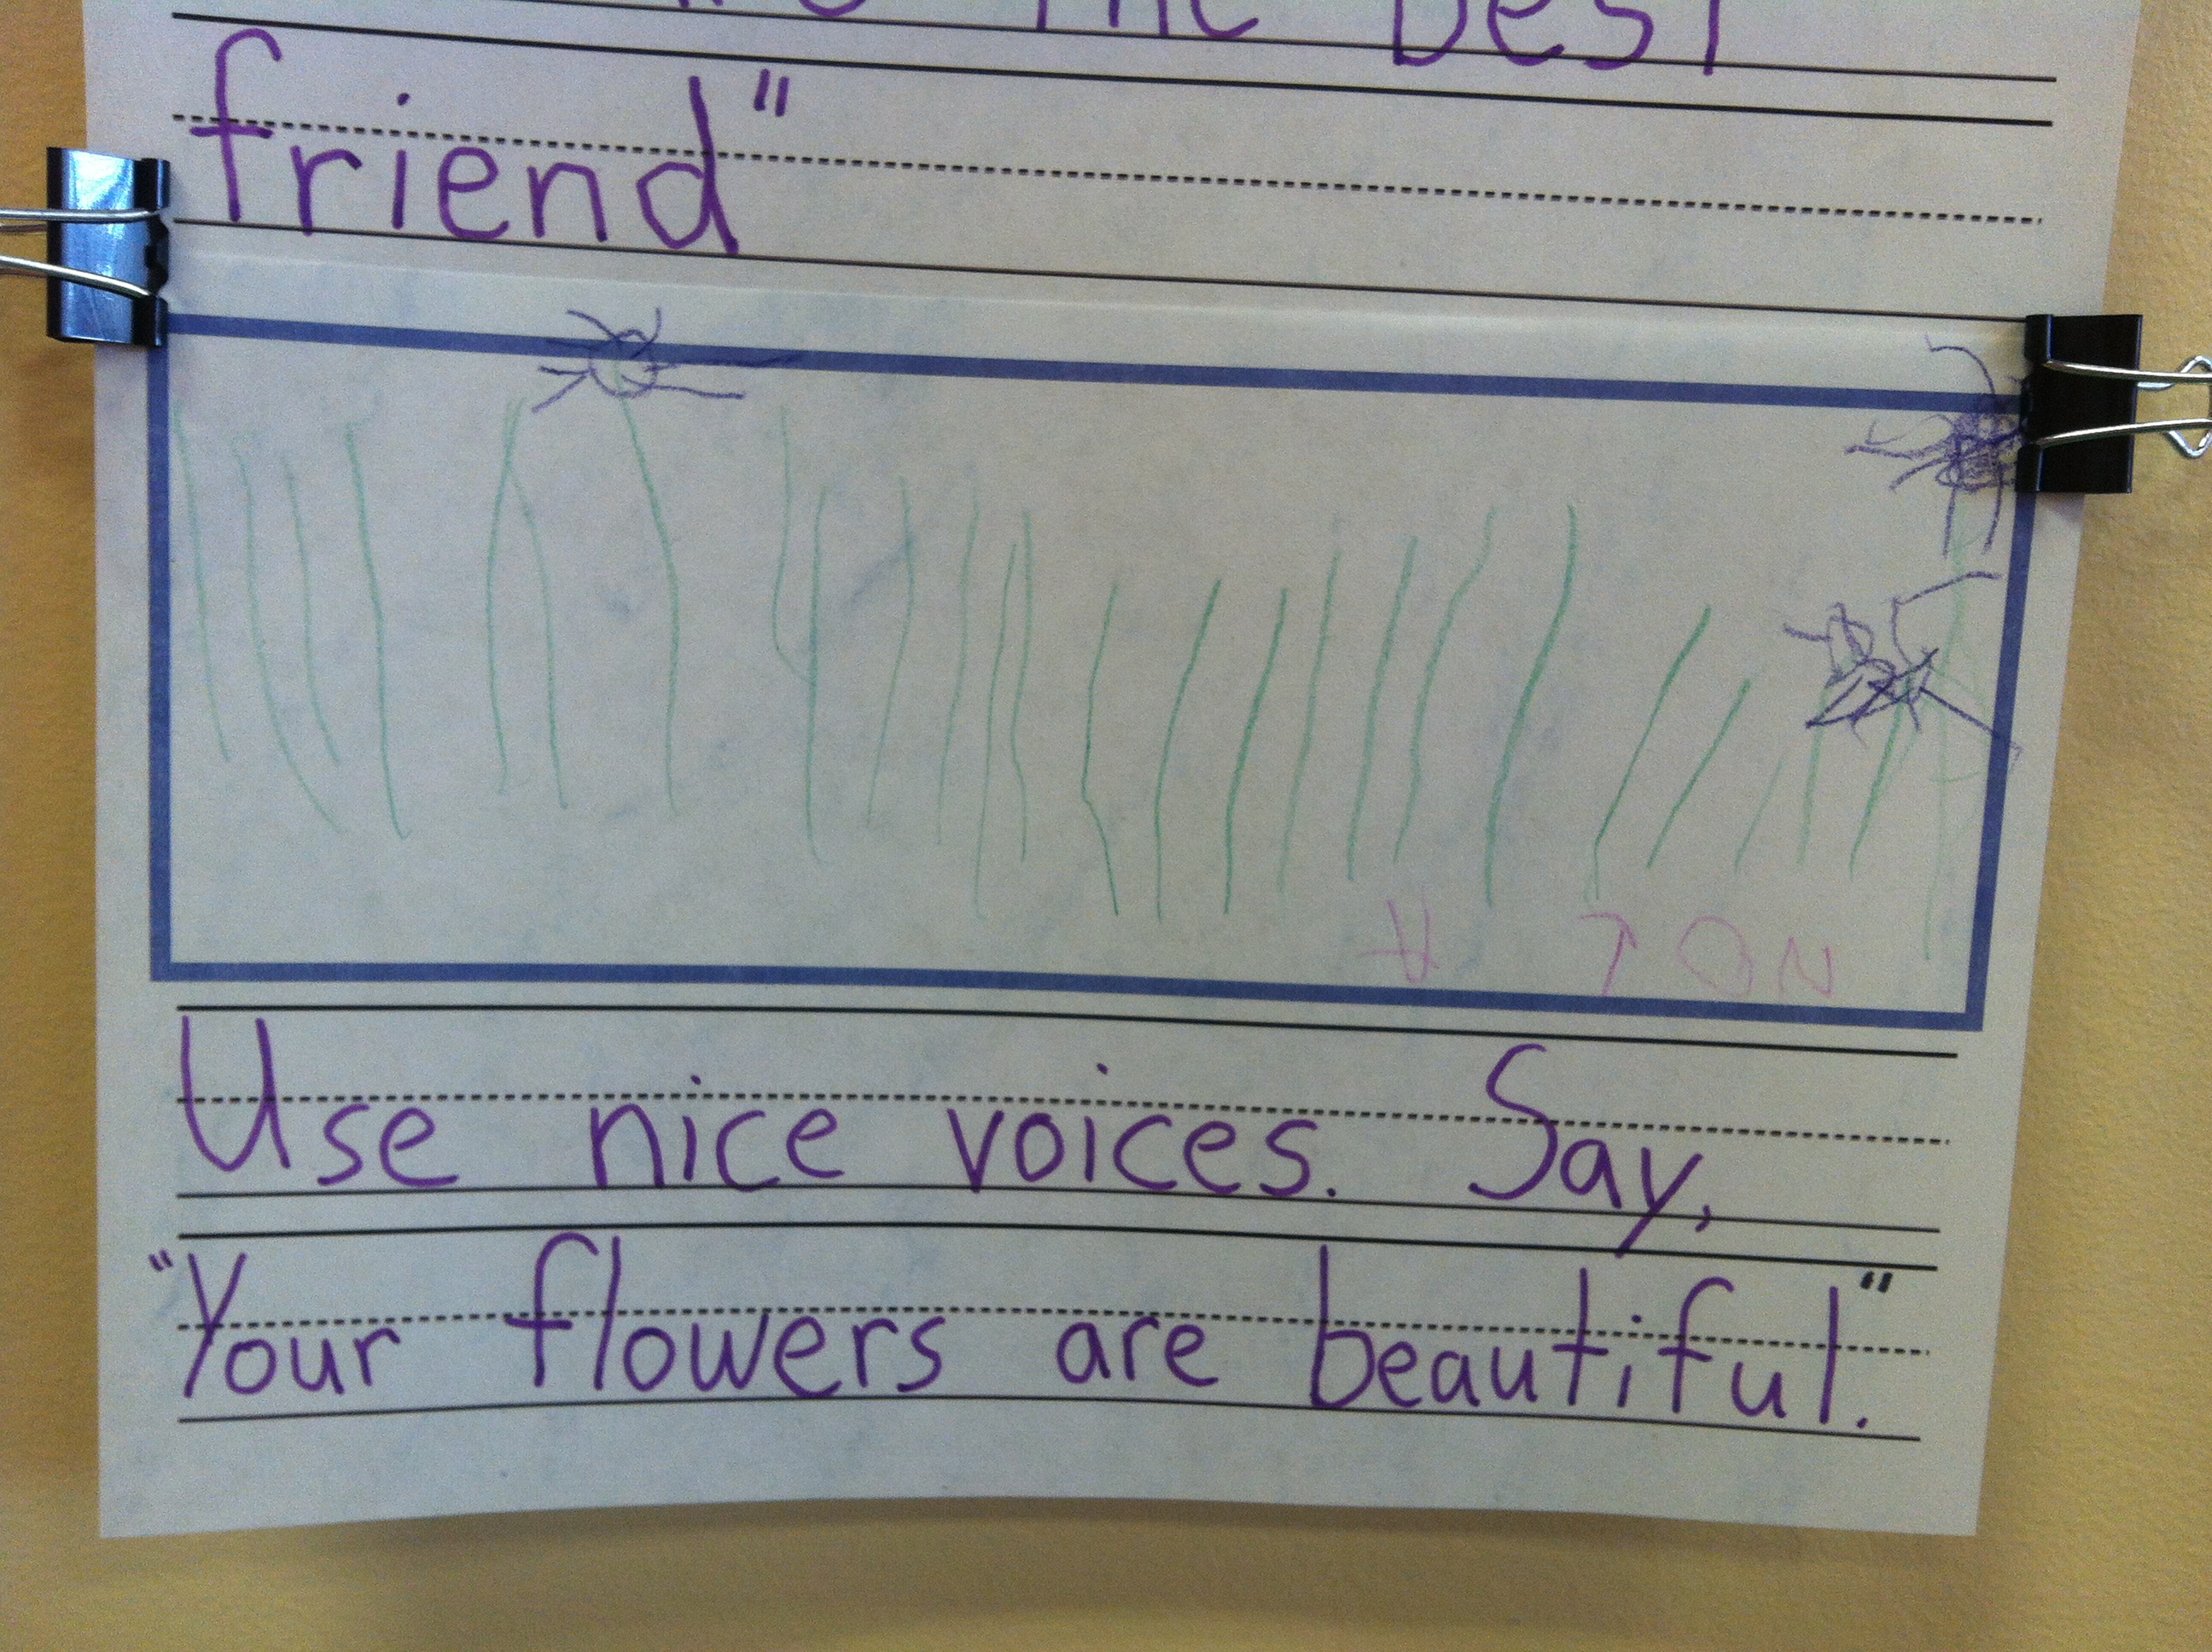 the best
friend"
Use nice voices. Say,
"Your flowers are beautiful."